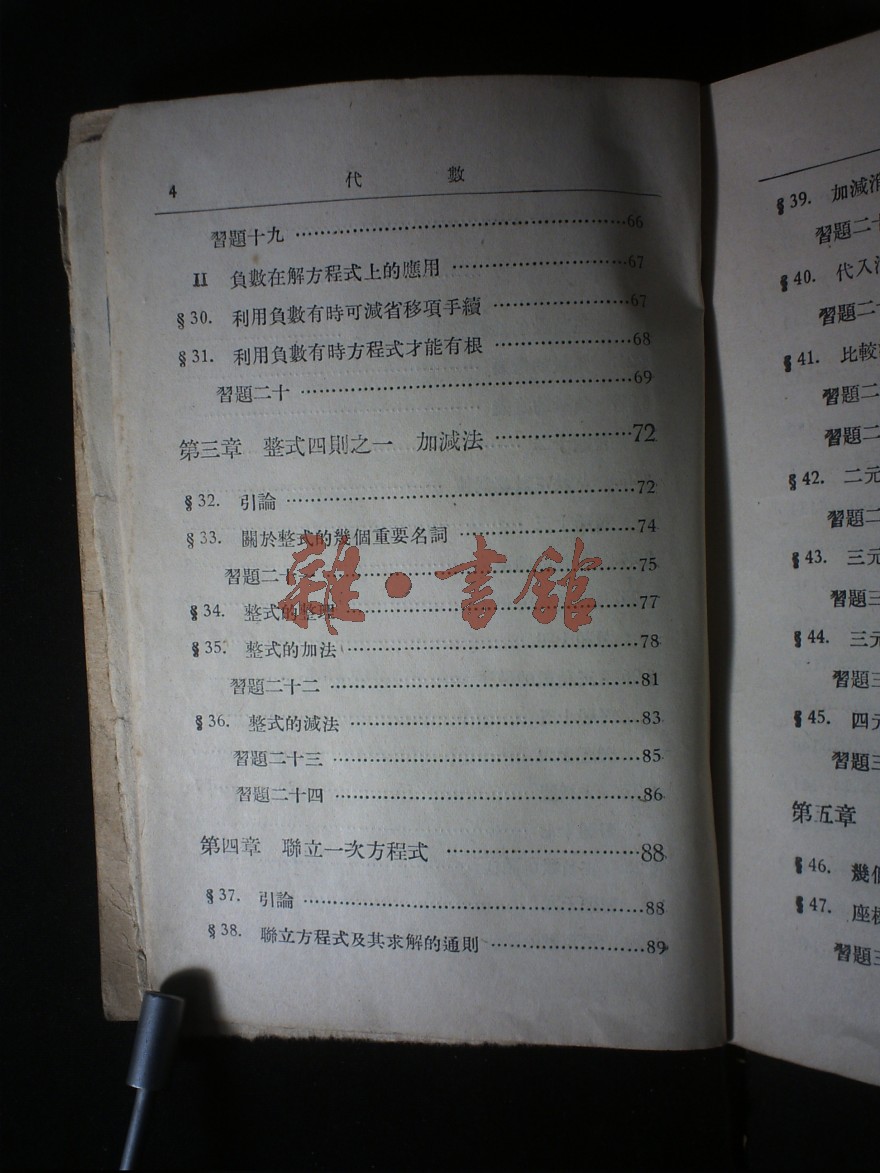 4 代 數
習題十九 ……66
II 負數在解方程式上的應用 ……67
§30. 利用負數有時可減省移項手續 ……67
§31. 利用負數有時方程式才能有根 ……68
習題二十 ……69
第三章 整式四則之一 加減法 ……72
§32. 引論 ……72
§33. 關於整式的幾個重要名詞 ……74
習題二十一 ……75
§34. 整式的整理 ……77
§35. 整式的加法 ……78
習題二十二 ……81
§36. 整式的減法 ……83
習題二十三 ……85
習題二十四 ……86
第四章 聯立一次方程式 ……88
§37. 引論 ……88
§38. 聯立方程式及其求解的通則 ……89
雜·書館
§39. 加減消
習題二十
§40. 代入
習題二十
§41. 比較
習題二
習題二
§42. 二元
習題二
§43. 三元
習題三
§44. 三元
習題三
§45. 四元
習題三
第五章
§46. 幾個
§47. 座標
習題三